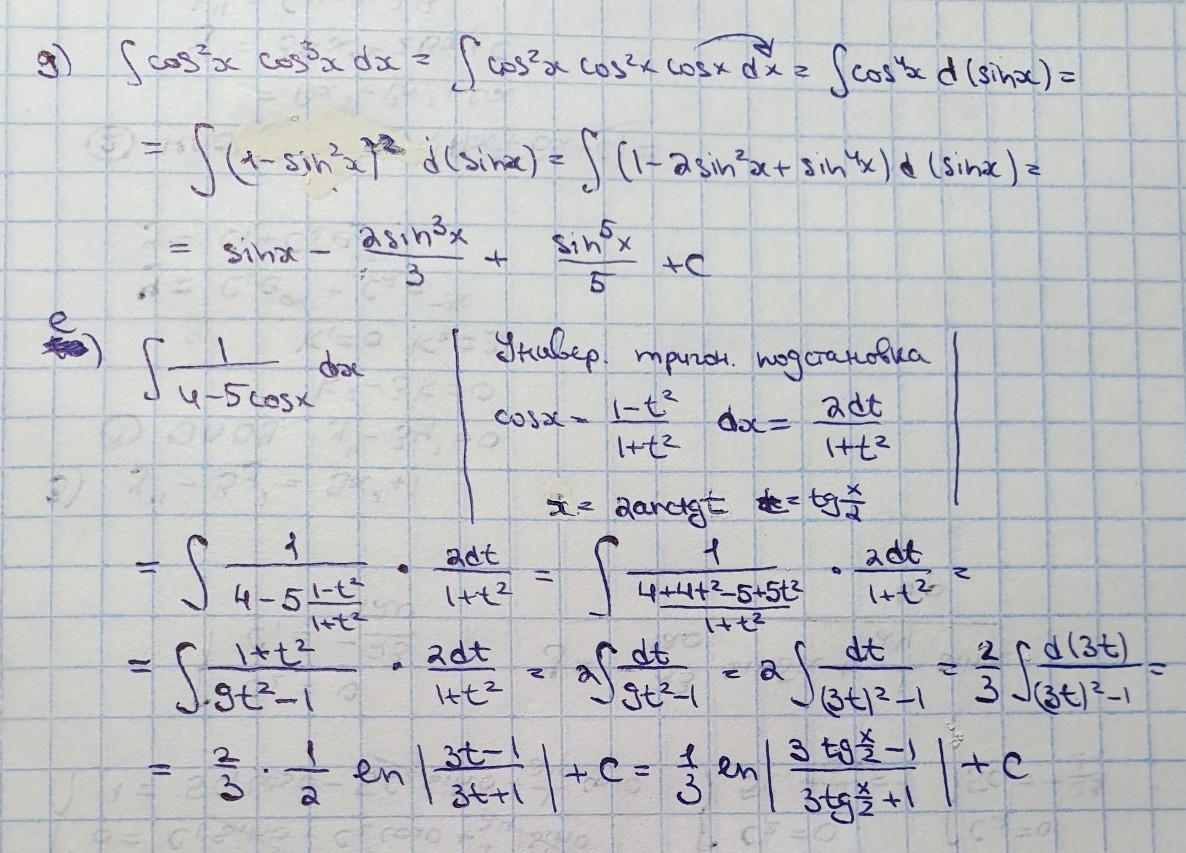 д) ∫ cos²x cos³x dx = ∫ cos²x cos²x cosx dx = ∫ cos⁴x d(sinx) =
= ∫ (1-sin²x)² d(sinx) = ∫ (1-2sin²x + sin⁴x) d(sinx) =
= sinx - 2sin³x/3 + sin⁵x/5 + C
е) ∫ 1/(4-5cosx) dx | Универ. тригон. подстановка |
cosx = (1-t²)/(1+t²) dx = 2dt/(1+t²)
x = 2arctgt t = tg x/2
= ∫ 1/(4-5 (1-t²)/(1+t²)) · 2dt/(1+t²) = ∫ 1/((4+4t²-5+5t²)/(1+t²)) · 2dt/(1+t²) =
= ∫ (1+t²)/(9t²-1) · 2dt/(1+t²) = 2∫ dt/(9t²-1) = 2∫ dt/((3t)²-1) = 2/3 ∫ d(3t)/((3t)²-1) =
= 2/3 · 1/2 ln |(3t-1)/(3t+1)| + C = 1/3 ln |(3 tg x/2 - 1)/(3 tg x/2 + 1)| + C